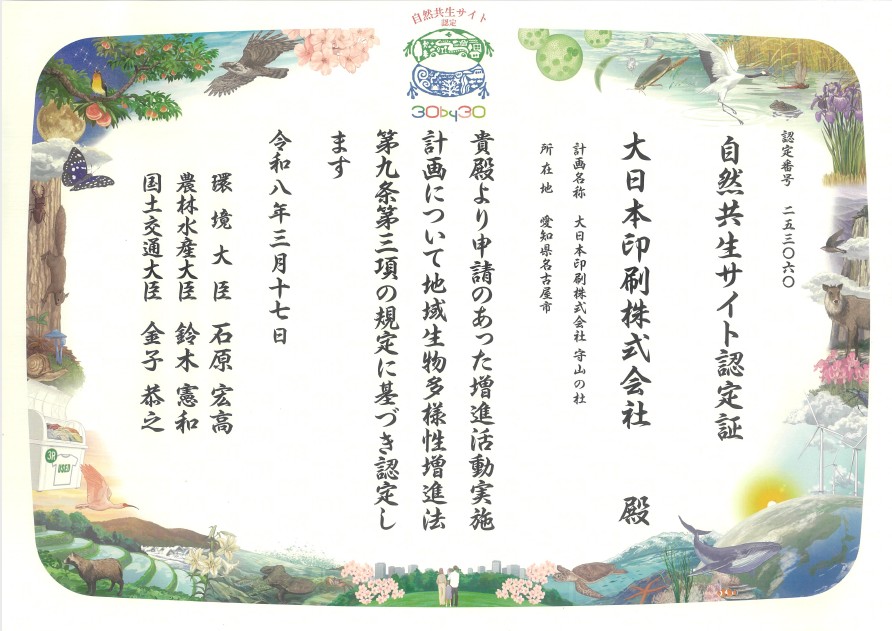 自然共生サイト
認定
30by30
認定番号 二五三〇六〇
自然共生サイト認定証
大日本印刷株式会社 殿
計画名称 大日本印刷株式会社 守山の杜
所在地 愛知県名古屋市
貴殿より申請のあった増進活動実施
計画について地域生物多様性増進法
第九条第三項の規定に基づき認定し
ます
令和八年三月十七日
環境大臣 石原 宏高
農林水産大臣 鈴木 憲和
国土交通大臣 金子 恭之
3R
USED